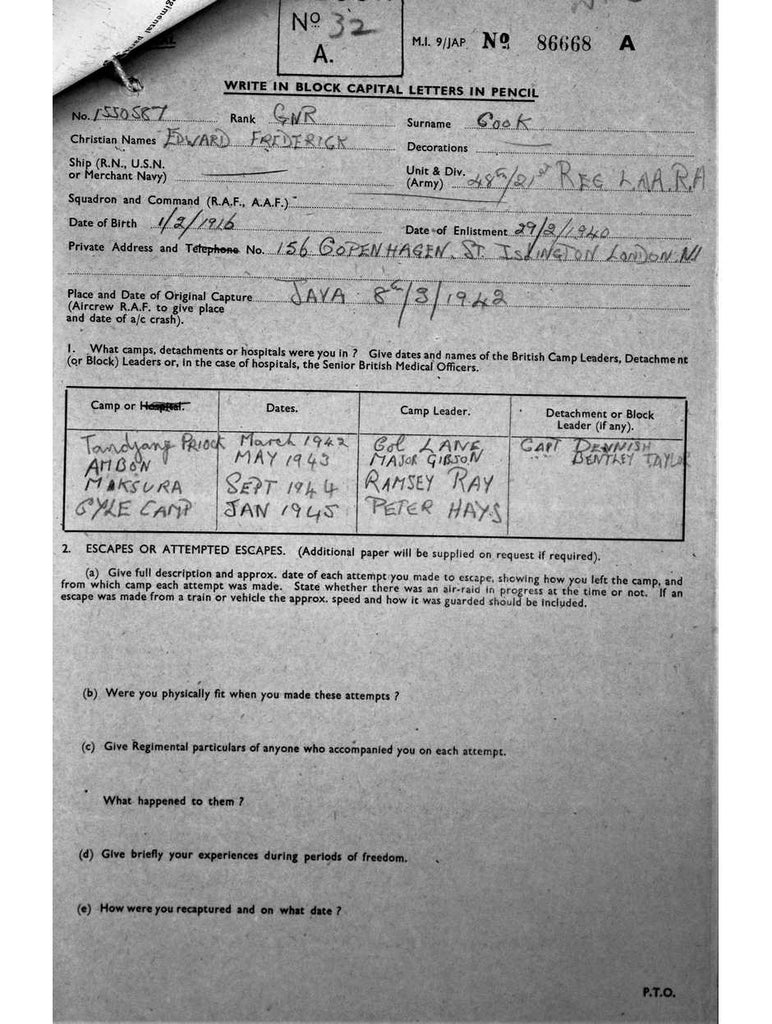 Nº 32
A.
M.I. 9/JAP Nº 86668 A
WRITE IN BLOCK CAPITAL LETTERS IN PENCIL
No. 1550587 Rank GNR Surname COOK
Christian Names EDWARD FREDERICK Decorations
Ship (R.N., U.S.N.
or Merchant Navy)
Unit & Div.
(Army) 48th/21st REG LAA. R.A
Squadron and Command (R.A.F., A.A.F.)
Date of Birth 1/2/1916 Date of Enlistment 29/2/1940
Private Address and Telephone No. 156 COPENHAGEN. ST ISLINGTON LONDON. N1
Place and Date of Original Capture JAVA 8th/3/1942
(Aircrew R.A.F. to give place
and date of a/c crash).
1. What camps, detachments or hospitals were you in ? Give dates and names of the British Camp Leaders, Detachment
(or Block) Leaders or, in the case of hospitals, the Senior British Medical Officers.
Camp or Hospital. Dates. Camp Leader. Detachment or Block
Leader (if any).
Tandjang PRIOCK March 1942 Col LANE CAPT DENNISH
AMBON MAY 1943 MAJOR GIBSON " " BENTLEY TAYLOR
MAKSURA SEPT 1944 RAMSEY RAY
CYLE CAMP JAN 1945 PETER HAYS
2. ESCAPES OR ATTEMPTED ESCAPES. (Additional paper will be supplied on request if required).
(a) Give full description and approx. date of each attempt you made to escape, showing how you left the camp, and
from which camp each attempt was made. State whether there was an air-raid in progress at the time or not. If an
escape was made from a train or vehicle the approx. speed and how it was guarded should be included.
(b) Were you physically fit when you made these attempts ?
(c) Give Regimental particulars of anyone who accompanied you on each attempt.
What happened to them ?
(d) Give briefly your experiences during periods of freedom.
(e) How were you recaptured and on what date ?
P.T.O.